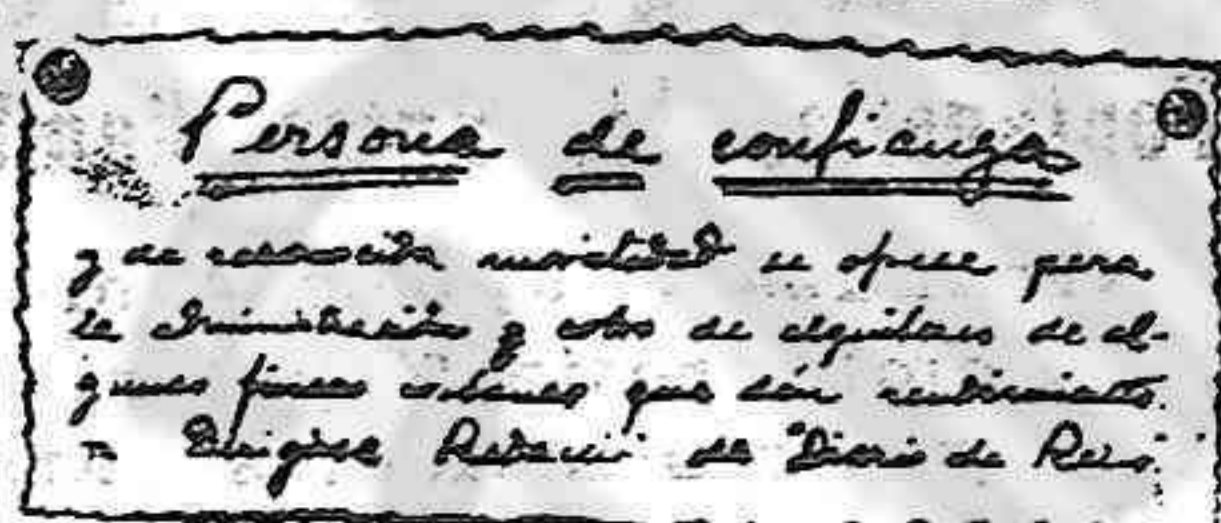 Persona de confianza
y de reconocida moralidad se ofrece para
la administración y cobro de alquileres de al-
gunas fincas urbanas que den rendimiento.
Dirigirse Redacció de "Diario de Reus".